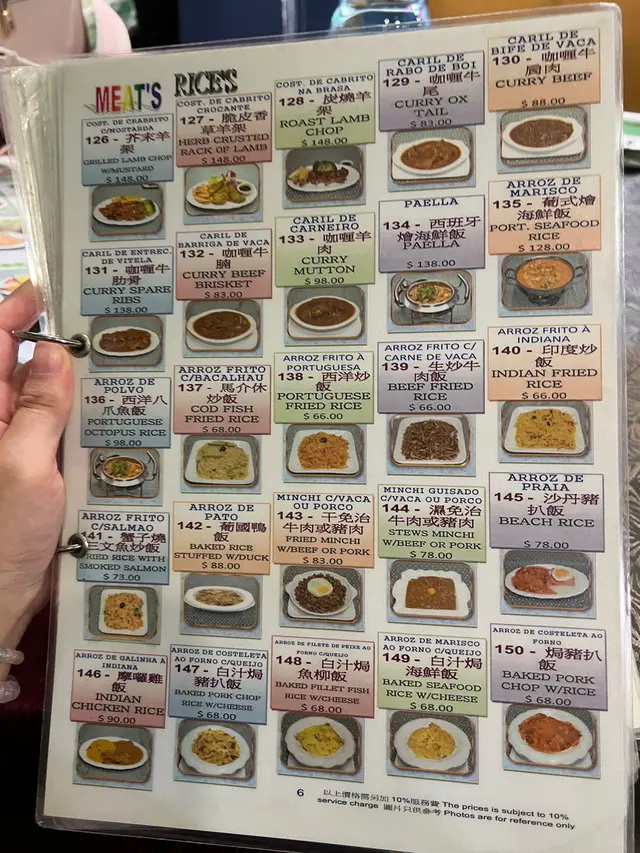 MEAT'S RICE'S
COST. DE CRABRITO
C/NOSTARDA
126 - 芥末羊
架
GRILLED LAMB CHOP
W/MUSTARD
$ 148.00
COST. DE CABRITO
CROCANTE
127 - 脆皮香
草羊架
HERB CRUSTED
RACK OF LAMB
$ 148.00
COST. DE CABRITO
NA BRASA
128 - 炭燒羊
架
ROAST LAMB
CHOP
$ 148.00
CARIL DE
RABO DE BOI
129 - 咖喱牛
尾
CURRY OX
TAIL
$ 83.00
CARIL DE
BIFE DE VACA
130 - 咖喱牛
扃肉
CURRY BEEF
$ 88.00
CARIL DE ENTREC.
DE VITELA
131 - 咖喱牛
肋骨
CURRY SPARE
RIBS
$ 138.00
CARIL DE
BARRIGA DE VACA
132 - 咖喱牛
腩
CURRY BEEF
BRISKET
$ 83.00
CARIL DE
CARNEIRO
133 - 咖喱羊
肉
CURRY
MUTTON
$ 98.00
PAELLA
134 - 西班牙
燴海鮮飯
PAELLA
$ 138.00
ARROZ DE
MARISCO
135 - 葡式燴
海鮮飯
PORT. SEAFOOD
RICE
$ 128.00
ARROZ DE
POLVO
136 - 西洋八
爪魚飯
PORTUGUESE
OCTOPUS RICE
$ 98.00
ARROZ FRITO
C/BACALHAU
137 - 馬介休
炒飯
COD FISH
FRIED RICE
$ 68.00
ARROZ FRITO À
PORTUGUESA
138 - 西洋炒
飯
PORTUGUESE
FRIED RICE
$ 66.00
ARROZ FRITO C/
CARNE DE VACA
139 - 生炒牛
肉飯
BEEF FRIED
RICE
$ 66.00
ARROZ FRITO À
INDIANA
140 - 印度炒
飯
INDIAN FRIED
RICE
$ 66.00
ARROZ FRITO
C/SALMAO
41 - 蟹子燒
三文魚炒飯
RIED RICE WITH
SMOKED SALMON
$ 73.00
ARROZ DE
PATO
142 - 葡國鴨
飯
BAKED RICE
STUFFED W/DUCK
$ 88.00
MINCHI C/VACA
OU PORCO
143 - 干免治
牛肉或豬肉
FRIED MINCHI
W/BEEF OR PORK
$ 83.00
MINCHI GUISADO
C/VACA OU PORCO
144 - 濕免治
牛肉或豬肉
STEWS MINCHI
W/BEEF OR PORK
$ 78.00
ARROZ DE
PRAIA
145 - 沙丹豬
扒飯
BEACH RICE
$ 78.00
ARROZ DE GALINHA A
INDIANA
146 - 摩囉雞
飯
INDIAN
CHICKEN RICE
$ 90.00
ARROZ DE COSTELETA
AO FORNO C/QUEIJO
147 - 白汁焗
豬扒飯
BAKED PORK CHOP
RICE W/CHEESE
$ 68.00
ARROZ DE FILETE DE PEIXE AO
FORNO C/QUEIJO
148 - 白汁焗
魚柳飯
BAKED FILLET FISH
RICE W/CHEESE
$ 68.00
ARROZ DE MARISCO
AO FORNO C/QUEIJO
149 - 白汁焗
海鮮飯
BAKED SEAFOOD
RICE W/CHEESE
$ 68.00
ARROZ DE COSTELETA AO
FORNO
150 - 焗豬扒
飯
BAKED PORK
CHOP W/RICE
$ 68.00
6
以上價格需另加 10%服務費 The prices is subject to 10%
service charge 圖片只供參考 Photos are for reference only